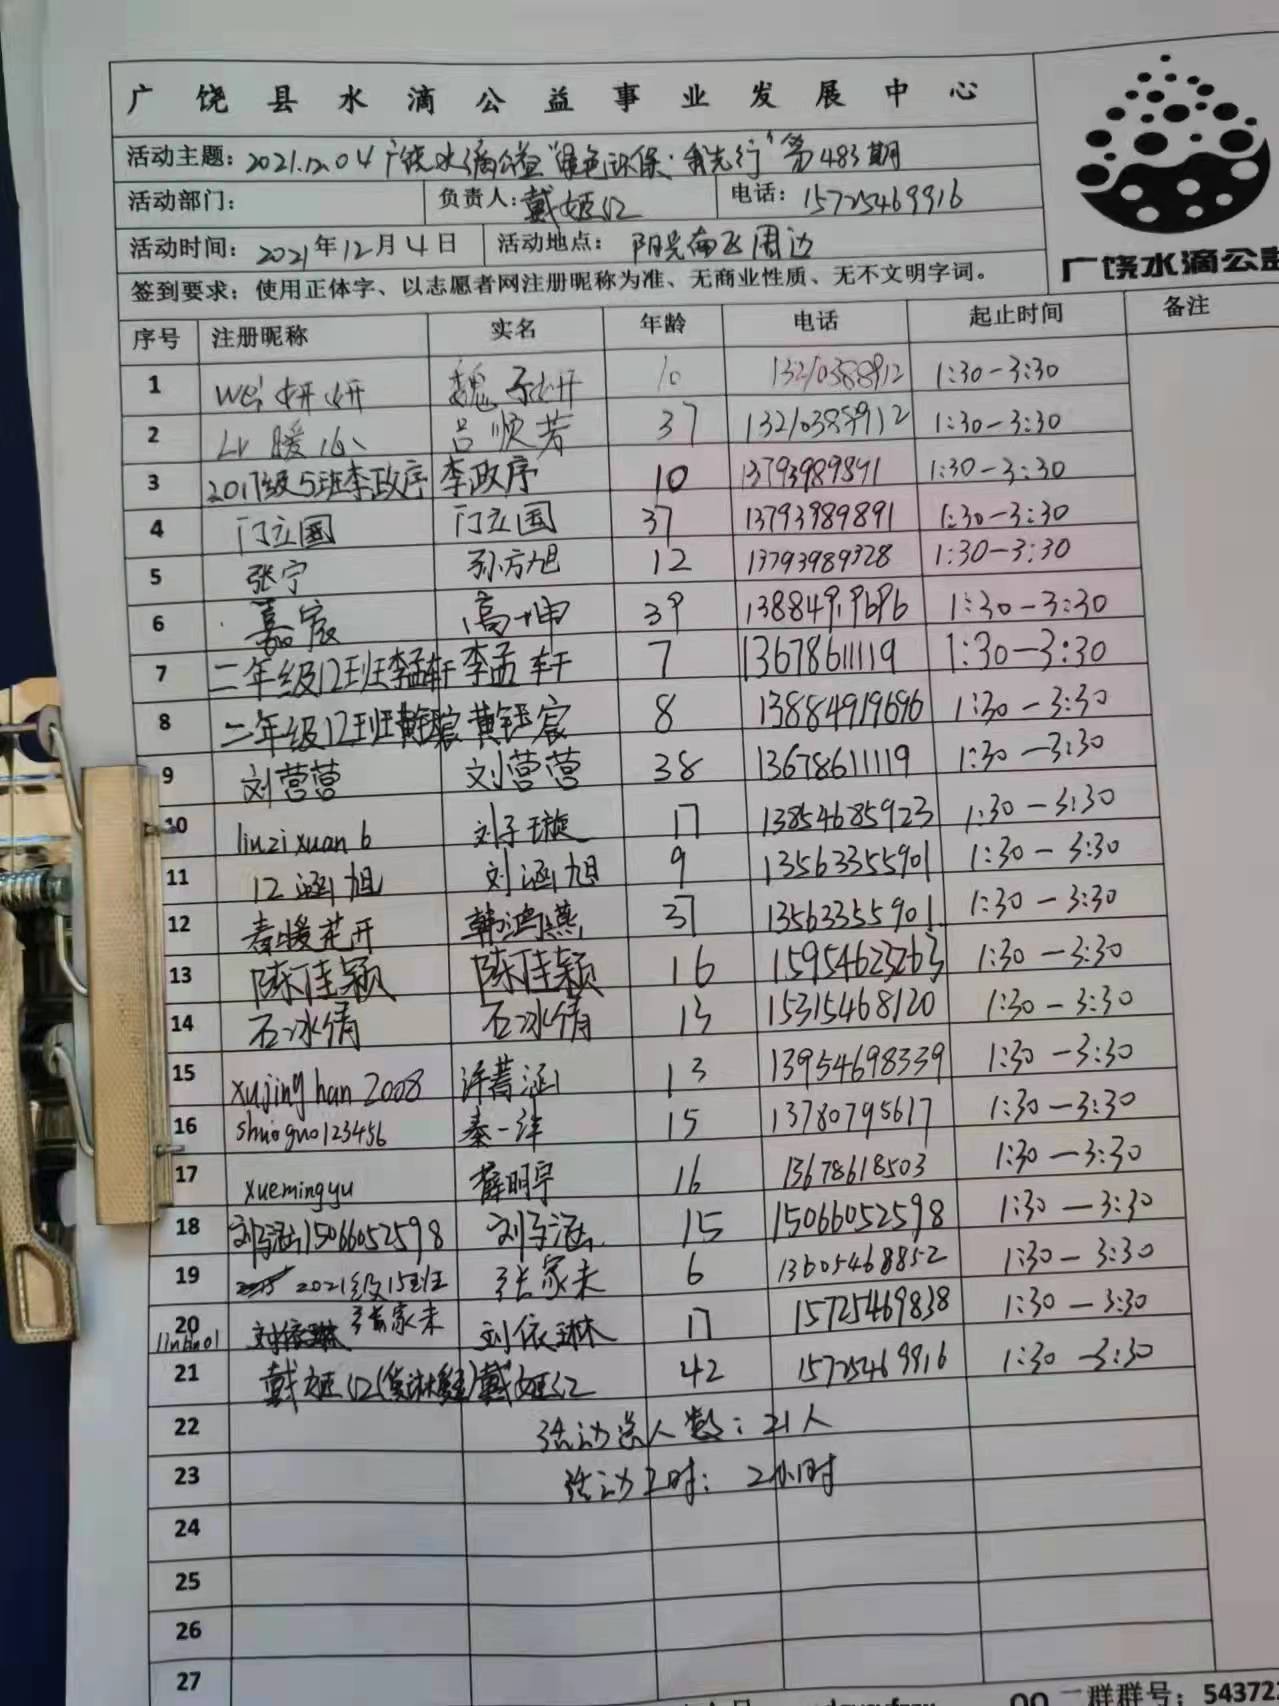 广饶县水滴公益事业发展中心
活动主题：2021.12.04广饶水滴公益"绿色环保·我先行"第483期
活动部门： 负责人：戴姬红 电话：15725469916
活动时间：2021年12月4日 活动地点：阳光 周边
签到要求：使用正体字、以志愿者网注册昵称为准、无商业性质、无不文明字词。
广饶水滴公益
序号 注册昵称 实名 年龄 电话 起止时间 备注
1 wei妍妍 魏子妍 10 13210388912 1:30-3:30
2 LV暖心 吕顺芳 37 13210388912 1:30-3:30
3 2017级5班李政序 李政序 10 13793989891 1:30-3:30
4 门立国 门立国 37 13793989891 1:30-3:30
5 张宁 孙方旭 12 13793989328 1:30-3:30
6 嘉宸 高坤 39 13884919696 1:30-3:30
7 二年级12班李孟轩 李孟轩 7 13678611119 1:30-3:30
8 二年级12班黄钰宸 黄钰宸 8 13884919696 1:30-3:30
9 刘营营 刘营营 38 13678611119 1:30-3:30
10 liuzixuan6 刘子璇 17 13854685923 1:30-3:30
11 12涵旭 刘涵旭 9 13563355901 1:30-3:30
12 春暖花开 韩鸿燕 37 13563355901 1:30-3:30
13 陈佳颖 陈佳颖 16 15954623263 1:30-3:30
14 石冰倩 石冰倩 13 15315468120 1:30-3:30
15 xujinghan2008 许菁涵 13 13954698339 1:30-3:30
16 shuoguo123456 秦一洋 15 13780795617 1:30-3:30
17 xuemingyu 薛明宇 16 13678618503 1:30-3:30
18 刘子涵15066052598 刘子涵 15 15066052598 1:30-3:30
19 2021级15班 张家未 6 13605468852 1:30-3:30
张家未
20 刘依琳 刘依琳 17 15725469838 1:30-3:30
21 戴姬红 戴姬红 42 15725469916 1:30-3:30
22 活动总人数：21人
23 活动工时：2小时
24
25
26
27
QQ二群群号：54372